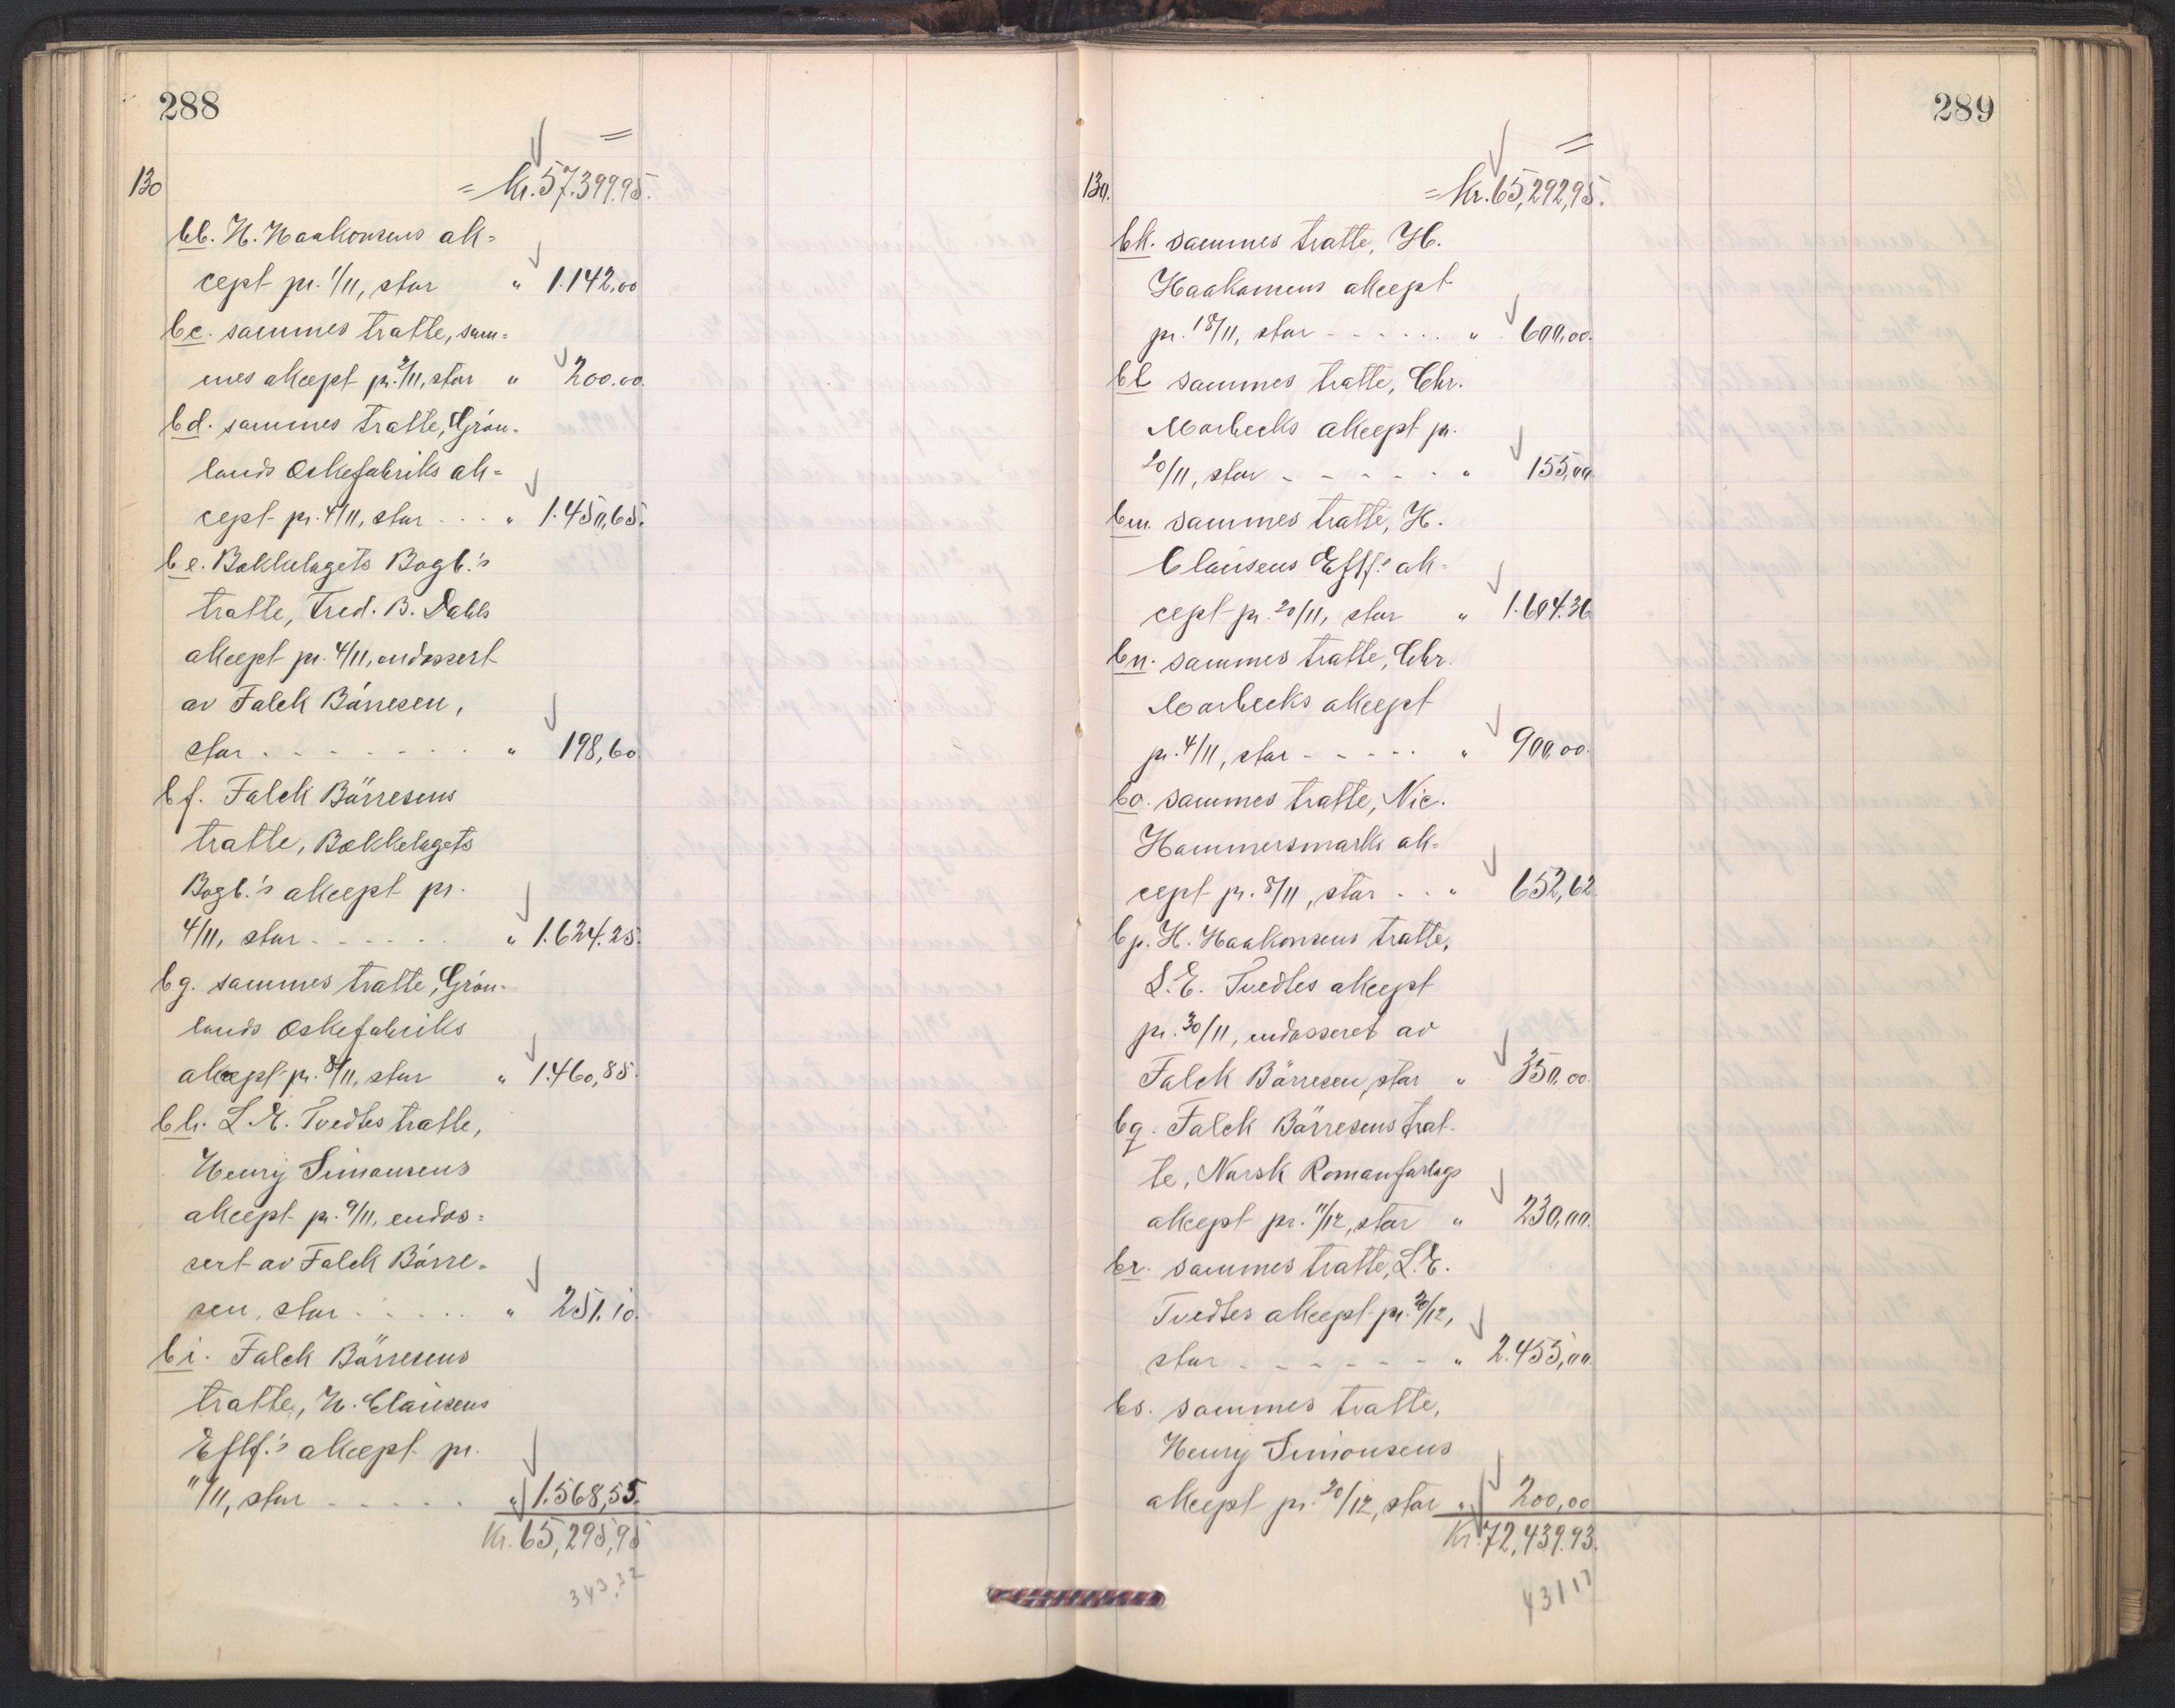 288
130
= Kr. 57.399.95.
bb. H. Haakonsens ak=
cept pr. 1/11, stor " 1.142,00
bc. sammes tratte, sam=
mes akcept pr. 2/11, stor " 200.00.
bd. sammes tratte, Grøn-
lands Æskefabriks ak=
cept pr. 4/11, stor . . . " 1.450,65.
be. Bokkelagets Bogh.'s
tratte, Fred. B. Dahls
akcept pr. 4/11, endossert
av Falck Börresen,
stor . . . . . . . " 198,60.
bf. Falck Börresens
tratte, Bokkelagets
Bogh.'s akcept pr.
4/11, stor . . . . . " 1.624.25.
bg. sammes tratte, Grøn-
lands Æskefabriks
akcept pr. 8/11, stor " 1.460,85.
bh. L. E. Tvedtes tratte,
Henry Simonsens
akcept pr. 9/11, endos=
sert av Falck Börre-
sen, stor . . . . . " 251.10.
bi. Falck Börresens
tratte, H. Clausens
Eftf.'s akcept pr.
11/11, stor . . . . . " 1.568,55.
Kr. 65,295,95
343,32
289
130.
= Kr. 65,292,95.
bk. sammes tratte, H.
Haakonsens akcept
pr. 18/11, stor . . . . . . " 600,00.
bl sammes tratte, Chr.
Morbecks akcept pr.
20/11, stor . . . . . . " 155,00.
bm. sammes tratte, H.
Clausens Eftf.s ak-
cept pr. 20/11, stor " 1.604.36
bn. sammes tratte, Chr.
Morbecks akcept
pr. 4/11, stor . . . . . " 900,00.
bo. sammes tratte, Nic.
Hammersmarks ak-
cept pr. 8/11, stor . . " 652,62.
bp. H. Haakonsens tratte,
L. E. Tvedtes akcept
pr. 30/11, endosseret av
Falck Börresen, stor " 350,00.
bq. Falck Börresens trat-
te, Norsk Romanforlags
akcept pr. 11/12, stor " 230,00.
br. sammes tratte, L. E.
Tvedtes akcept pr. 20/12,
stor . . . . . . " 2.455,00.
bs. sammes tratte,
Henry Simonsens
akcept pr. 20/12, stor " 200,00
Kr. 72,439.93.
431 17